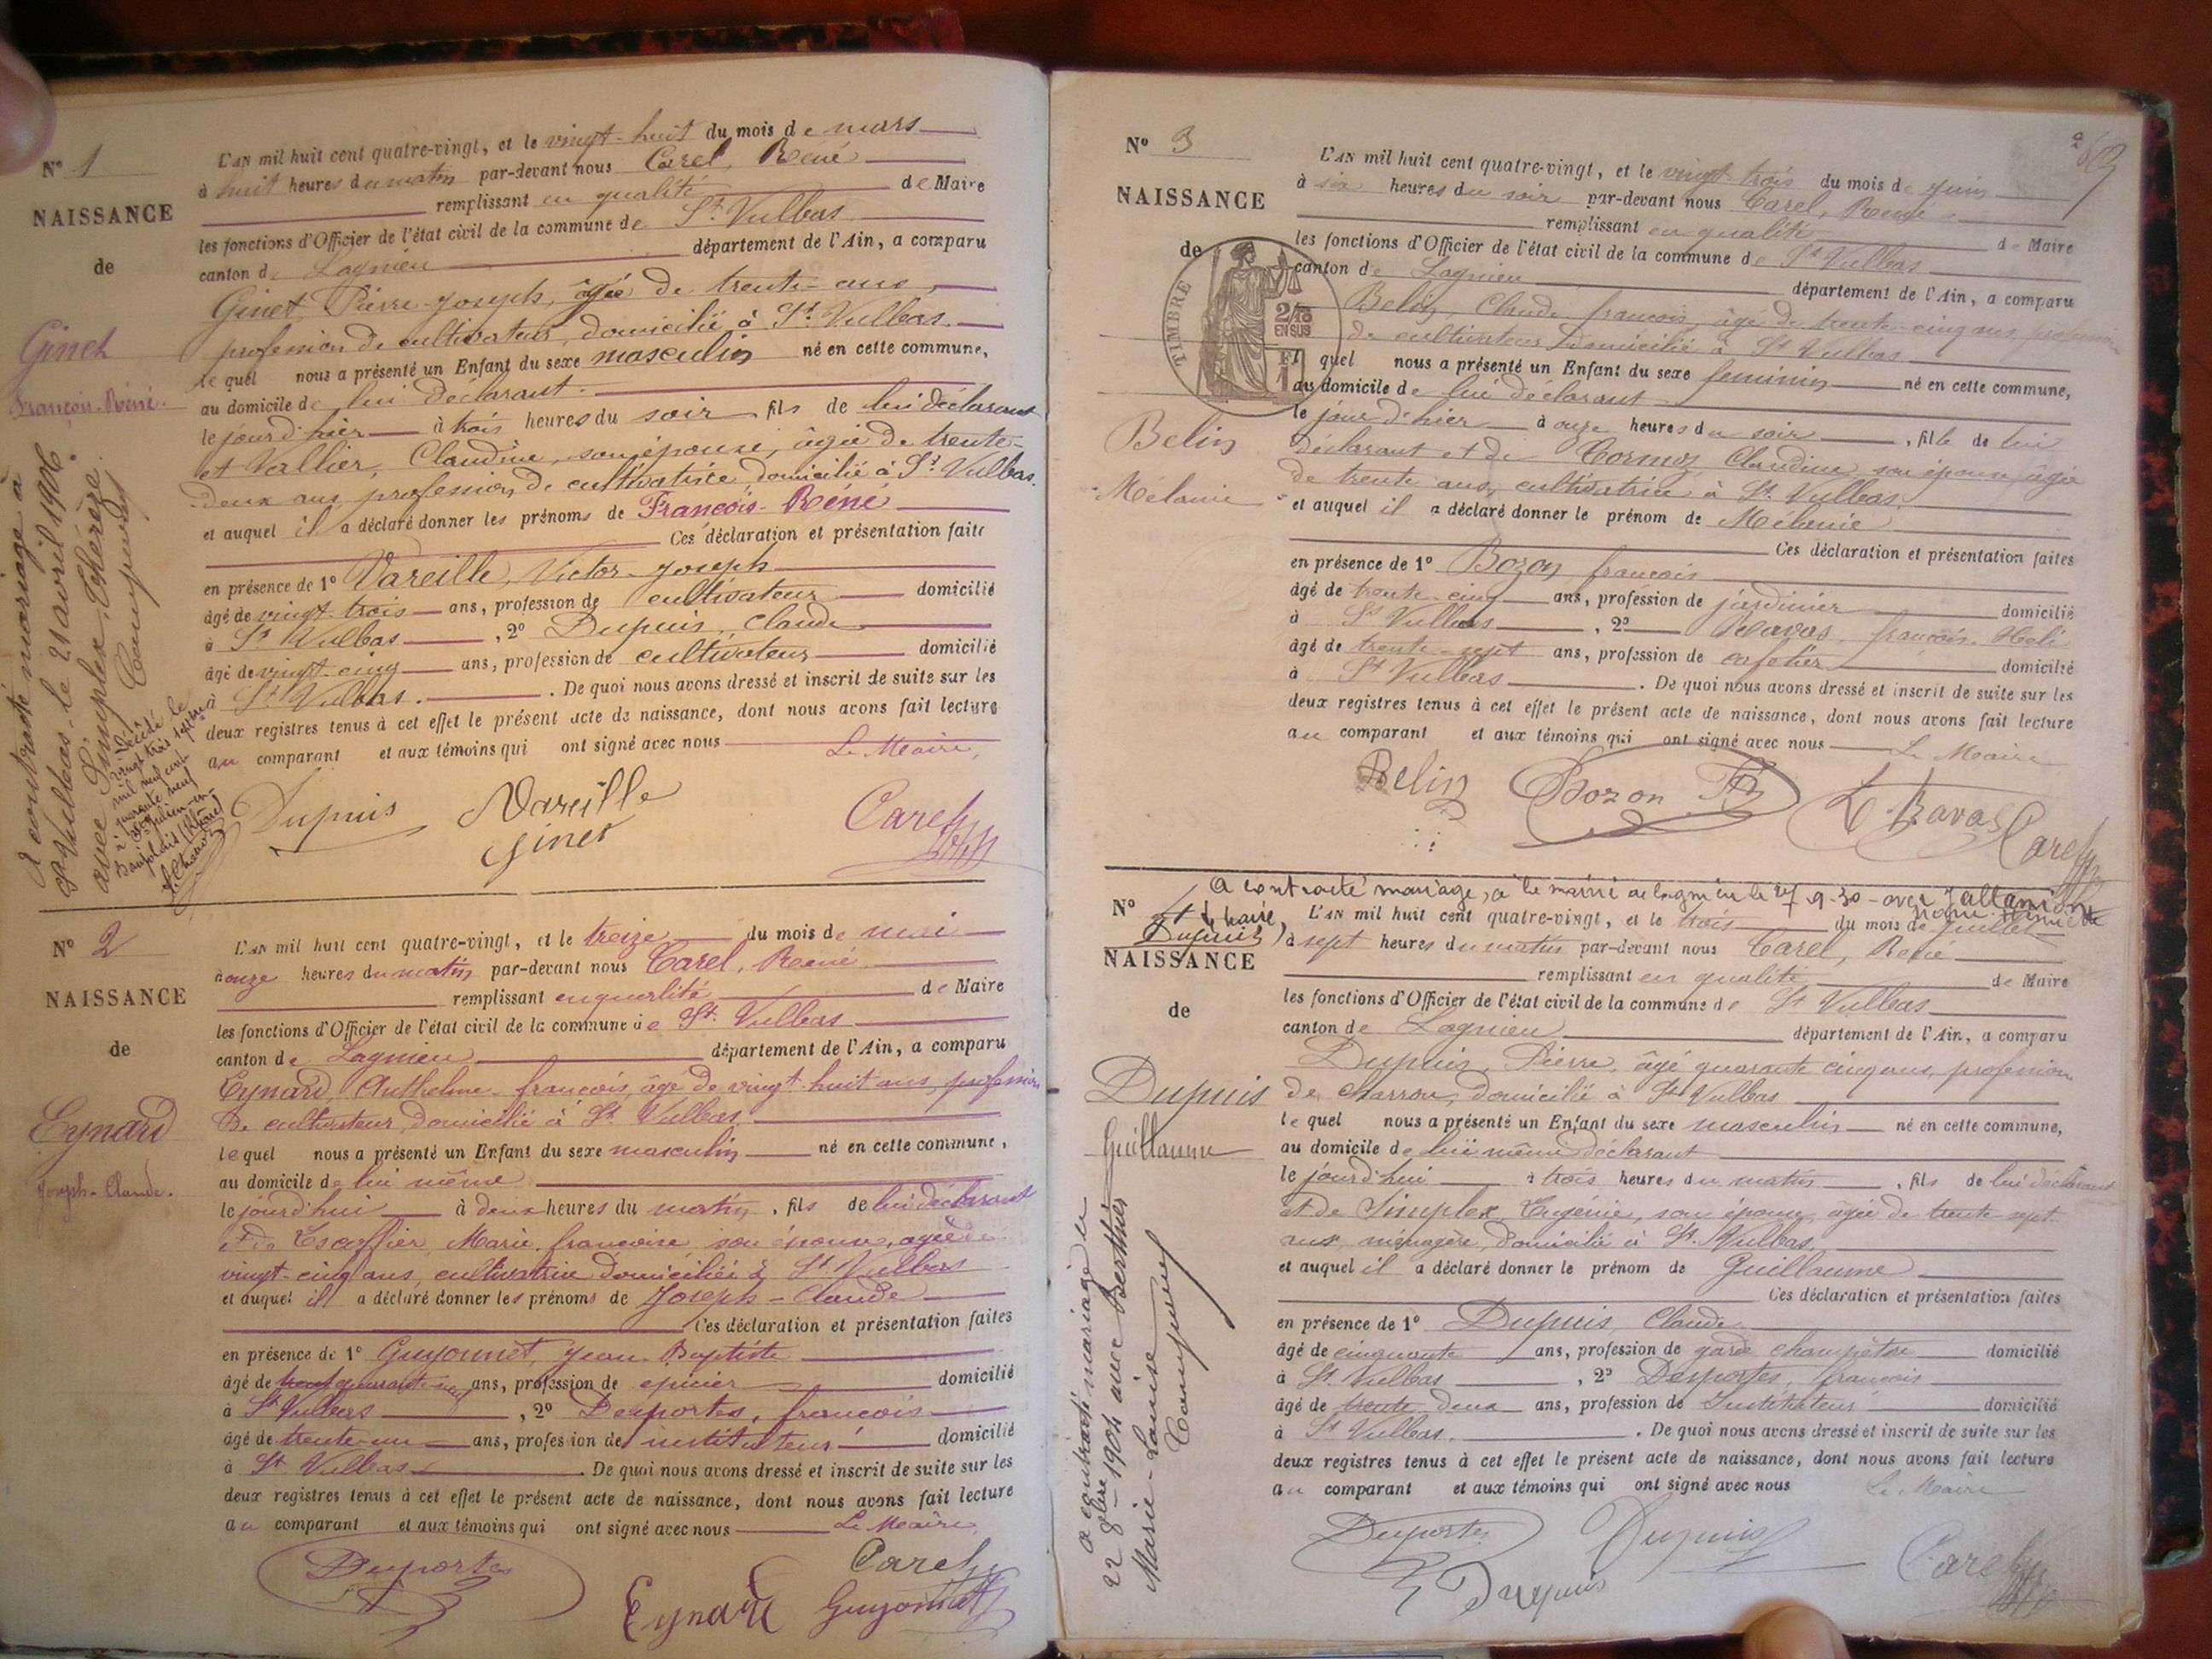 N° 1
NAISSANCE
de
Ginet
François-Réné.
L'AN mil huit cent quatre-vingt, et le vingt-huit du mois de mars
à huit heures du matin par-devant nous Carel, Réné
remplissant en qualité de Maire
les fonctions d'Officier de l'état civil de la commune de St. Vulbas
canton de Lagnieu département de l'Ain, a comparu
Ginet Pierre-Joseph, âgé de trente-ans,
profession de cultivateur, domicilié à St. Vulbas.
lequel nous a présenté un Enfant du sexe masculin né en cette commune,
au domicile de lui déclarant.
le jour d'hier à trois heures du soir fils de lui déclarant
et Vallier, Claudine, son épouse, âgée de trente-
deux ans, profession de cultivatrice, domicilié à St. Vulbas.
et auquel il a déclaré donner les prénoms de François-Réné
Ces déclaration et présentation faite
en présence de 1° Vareille, Victor-Joseph
âgé de vingt-trois ans, profession de cultivateur domicilié
à St. Vulbas, 2° Dupuis, Claude
âgé de vingt-cinq ans, profession de cultivateur domicilié
à St. Vulbas. De quoi nous avons dressé et inscrit de suite sur les
deux registres tenus à cet effet le présent acte de naissance, dont nous avons fait lecture
au comparant et aux témoins qui ont signé avec nous Le Maire,
Dupuis Vareille Carel
Ginet
A contracté mariage à
St Vulbas le 21 avril 1906
avec Simplex, Thérèze
Décédé le
vingt trois
mil neuf cent
quarante neuf
N° 2
NAISSANCE
de
Eynard
Joseph-Claude.
L'AN mil huit cent quatre-vingt, et le treize du mois de mai
à onze heures du matin par-devant nous Carel, Réné
remplissant en qualité de Maire
les fonctions d'Officier de l'état civil de la commune de St. Vulbas
canton de Lagnieu département de l'Ain, a comparu
Eynard, Anthelme-françois, âgé de vingt-huit ans, profession
de cultivateur, domicilié à St. Vulbas
lequel nous a présenté un Enfant du sexe masculin né en cette commune,
au domicile de lui même
le jourd'hui à deux heures du matin, fils de lui déclarant
et de Escoffier, Marie françoise, son épouse, agée de
vingt-cinq ans, cultivatrice domiciliée à St Vulbas
et auquel il a déclaré donner les prénoms de Joseph-Claude
Ces déclaration et présentation faites
en présence de 1° Guyonnet, Jean-Baptiste
âgé de quarante-un ans, profession de epicier domicilié
à St Vulbas, 2° Desportes, françois
âgé de trente-un ans, profession de instituteur domicilié
à St. Vulbas. De quoi nous avons dressé et inscrit de suite sur les
deux registres tenus à cet effet le présent acte de naissance, dont nous avons fait lecture
au comparant et aux témoins qui ont signé avec nous Le Maire,
Desportes Carel
Eynard Guyonnet
N° 3
NAISSANCE
de
TIMBRE
2/10
EN SUS
Belin
Mélanie
L'AN mil huit cent quatre-vingt, et le vingt-trois du mois de juin
à six heures du soir par-devant nous Carel, Réné
remplissant en qualité de Maire
les fonctions d'Officier de l'état civil de la commune de St Vulbas
canton de Lagnieu département de l'Ain, a comparu
Belin, Claude françois, âgé de trente-cinq ans, profession
de cultivateur domicilié à St Vulbas
lequel nous a présenté un Enfant du sexe feminin né en cette commune,
au domicile de lui déclarant
le jour d'hier à onze heures du soir, fille de lui
déclarant et de Cormoz Claudine, son épouse, âgée
de trente ans, cultivatrice à St. Vulbas.
et auquel il a déclaré donner le prénom de Mélanie
Ces déclaration et présentation faites
en présence de 1° Bozon françois
âgé de trente-cinq ans, profession de jardinier domicilié
à St Vulbas, 2° Ravas, françois-
âgé de trente-sept ans, profession de cafetier domicilié
à St Vulbas. De quoi nous avons dressé et inscrit de suite sur les
deux registres tenus à cet effet le présent acte de naissance, dont nous avons fait lecture
au comparant et aux témoins qui ont signé avec nous Le Maire
Belin Bozon Ravas Carel
A contracté mariage, à la mairie de Lagnieu le 27-9-30-avec Jallamion
N°
NAISSANCE
de
Dupuis
Guillaume
L'AN mil huit cent quatre-vingt, et le trois du mois de juillet
à sept heures du matin par-devant nous Carel, Réné
remplissant en qualité de Maire
les fonctions d'Officier de l'état civil de la commune de St Vulbas
canton de Lagnieu département de l'Ain, a comparu
Dupuis, Pierre, âgé quarante cinq ans, profession
de charron, domicilié à St Vulbas
lequel nous a présenté un Enfant du sexe masculin né en cette commune,
au domicile de lui même déclarant
le jourd'hui à trois heures du matin, fils de lui déclarant
et de Simplex Eugénie, son épouse, âgée de trente-sept
ans, ménagère, domicilié à St. Vulbas.
et auquel il a déclaré donner le prénom de Guillaume
Ces déclaration et présentation faites
en présence de 1° Dupuis Claude
âgé de cinquante ans, profession de garde champêtre domicilié
à St. Vulbas, 2° Desportes, françois
âgé de trente-deux ans, profession de Instituteur domicilié
à St Vulbas. De quoi nous avons dressé et inscrit de suite sur les
deux registres tenus à cet effet le présent acte de naissance, dont nous avons fait lecture
au comparant et aux témoins qui ont signé avec nous Le Maire
Desportes Dupuis Carel
Dupuis
a contracté mariage le
22 8bre 1904 avec Berthier
Marie-Louise